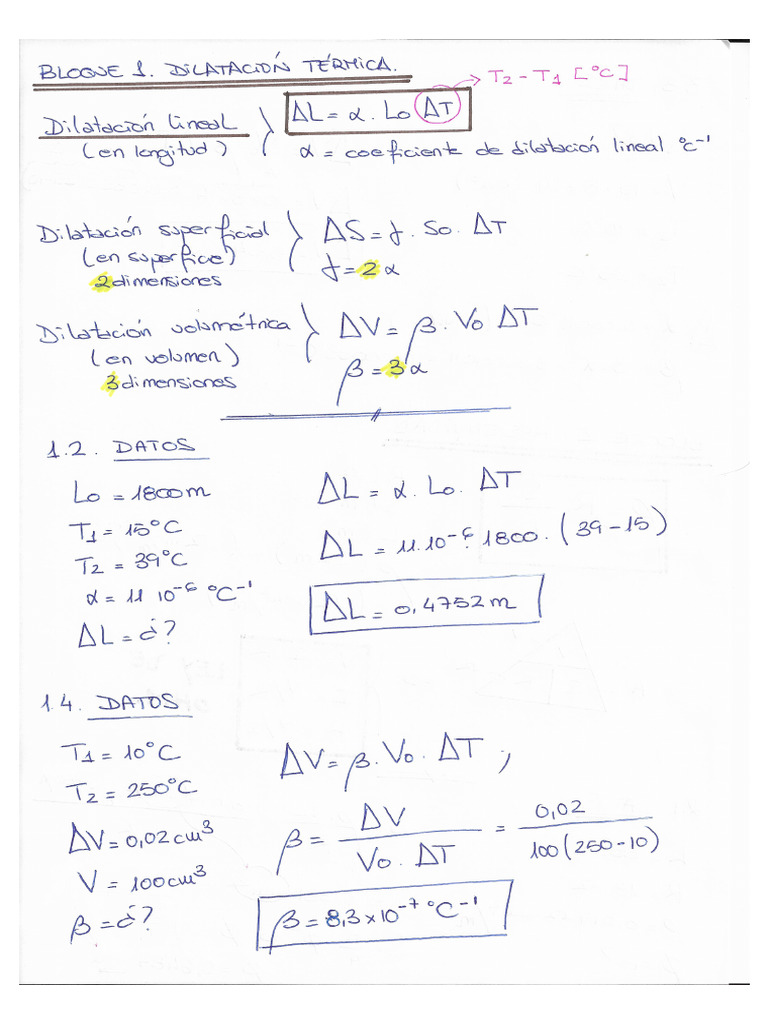 BLOQUE 1. DILATACIÓN TÉRMICA.
T2 - T1 [°C]
Dilatación lineal
(en longitud)
ΔL = α. Lo ΔT
α = coeficiente de dilatación lineal °C⁻¹
Dilatación superficial
(en superficie)
2 dimensiones
ΔS = γ. So. ΔT
γ = 2 α
Dilatación volumétrica
(en volumen)
3 dimensiones
ΔV = β. Vo ΔT
β = 3 α
1.2. DATOS
Lo = 1800 m
T1 = 15°C
T2 = 39°C
α = 11 10⁻⁶ °C⁻¹
ΔL = ¿?
ΔL = α. Lo. ΔT
ΔL = 11.10⁻⁶. 1800. (39 - 15)
ΔL = 0,4752 m
1.4. DATOS
T1 = 10°C
T2 = 250°C
ΔV = 0,02 cm³
V = 100 cm³
β = ¿?
ΔV = β. Vo. ΔT ;
β = ΔV / Vo. ΔT = 0,02 / 100 (250 - 10)
β = 8,3 x 10⁻⁷ °C⁻¹